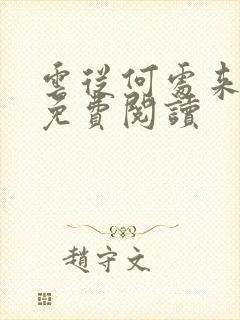 雲從何處來
免費閱讀
趙守文